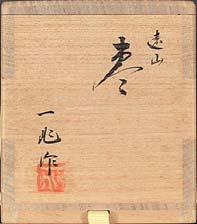 遠山
棗
一兆作